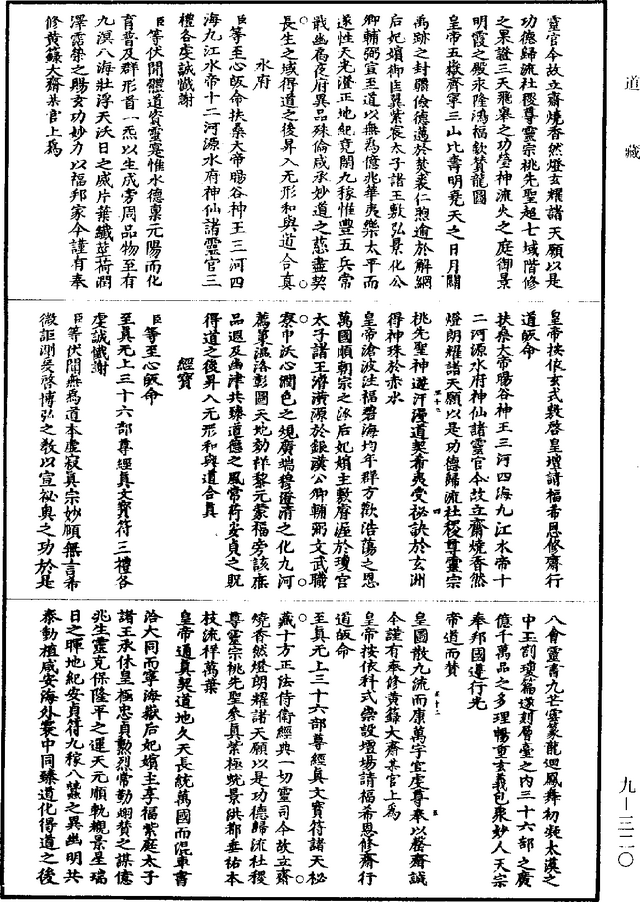 道藏
靈官今故立齋燒香然燈玄耀諸天願以是
功德歸流社稷尊靈宗桃先聖超七域階修
之果證三天飛舉之功瑩神流火之庭御景
明霞之殿永隆鴻福欽贊龍圖
皇帝五嶽齊寧三山比壽明堯天之日月闢
禹跡之封疆儉德邁於焚裘仁煦逾於解網
后妃嬪御匡翼紫宸太子諸王敷弘景化公
卿輔弼宣至道以無為億兆華夷樂太平而
遂性天光澄正地紀寬閑九稼惟豐五兵常
戢幽扃夜府異品殊倫咸承妙道之慈盡契
長生之域得道之後昇入无形和與道合真
水府
臣等至心皈命扶桑大帝暘谷神王三河四
海九江水帝十二河源水府神仙諸靈官三
禮各虔誠懺謝
臣等伏聞體道資靈寔惟水德稟元陽而化
育普及群形首一炁以生成旁周品物至有
九溟八海壯浮天沃日之威片葉纖莖荷潤
澤霑榮之賜玄功妙力以福邦家今謹有奉
修黃籙大齋某官上為
皇帝按依玄式敷啓皇壇請福希恩修齋行
道皈命
扶桑大帝暘谷神王三河四海九江水帝十
二河源水府神仙諸靈官今故立齋燒香然
燈朗耀諸天願以是功德歸流社稷尊靈宗
桃先聖神遊汗漫道契希夷受祕訣於玄洲
得神珠於赤水
皇帝滄波注福碧海均年群方歡浩蕩之恩
萬國順朝宗之泳后妃嬪主數膺涯於瓊宫
太子諸王濟潢源於銀漢公卿輔弼文武職
寮巾沃心潤色之規廣端穆澄清之化九河
薦箓温洛彭圖天地効祥黎元蒙福旁該庶
品遐及幽津共臻道德之風常荷安貞之貺
得道之後昇入无形和與道合真
經寶
臣等至心皈命
至真无上三十六部尊經真文寶符三禮各
虔誠懺謝
臣等伏聞無為道本虛寂真宗妙願無言希
微詎測爰啓博弘之教以宣祕奥之功於是
八會靈書九芒雲篆龍迴鳳舞初凝太漠之
中玉劄瓊篇遂刻層臺之内三十六部之廣
億千萬品之多理暢重玄義包衆妙人天宗
奉邦國遵行光
帝道而贊
皇圖散九流而康萬宇宜虔尊奉以罄齋誠
今謹有奉修黃籙大齋某官上為
皇帝按依科式崇設壇場請福希恩修齋行
道皈命
至真无上三十六部尊經真文寶符諸天祕
藏十方正法侍衛經典一切靈司今故立齋
燒香然燈朗耀諸天願以是功德歸流社稷
尊靈宗桃先聖參真業極蛻景洪都垂祐本
枝流祥萬葉
皇帝通真契道地久天長統萬國而混車書
洽大同而寧海嶽后妃嬪主享福紫庭太子
諸王承休皇極忠貞勳烈常勤翊贊之謀億
兆生靈克保隆平之運天元順軌纖景星瑞
日之暉地紀安貞符九稼八蠶之異幽明共
泰動植咸安海外寰中同臻道化得道之後
九—三二〇